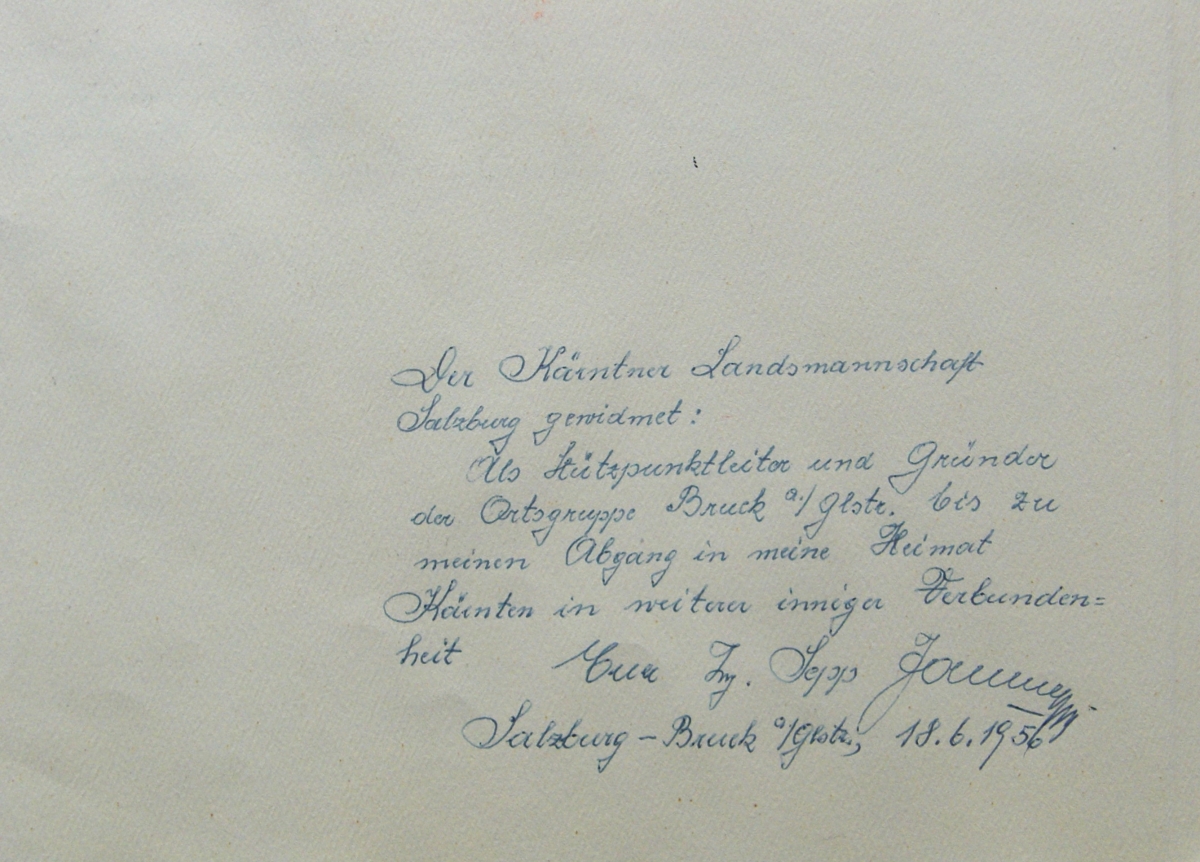 Der Kärntner Landsmannschaft
Salzburg gewidmet:
Als Stützpunktleiter und Gründer
der Ortsgruppe Bruck a./Glstr. bis zu
meinen Abgang in meine Heimat
Kärnten in weiterer inniger Verbunden=
heit Euer Ing. Sepp
Salzburg – Bruck a/Glstr., 18.6.1956